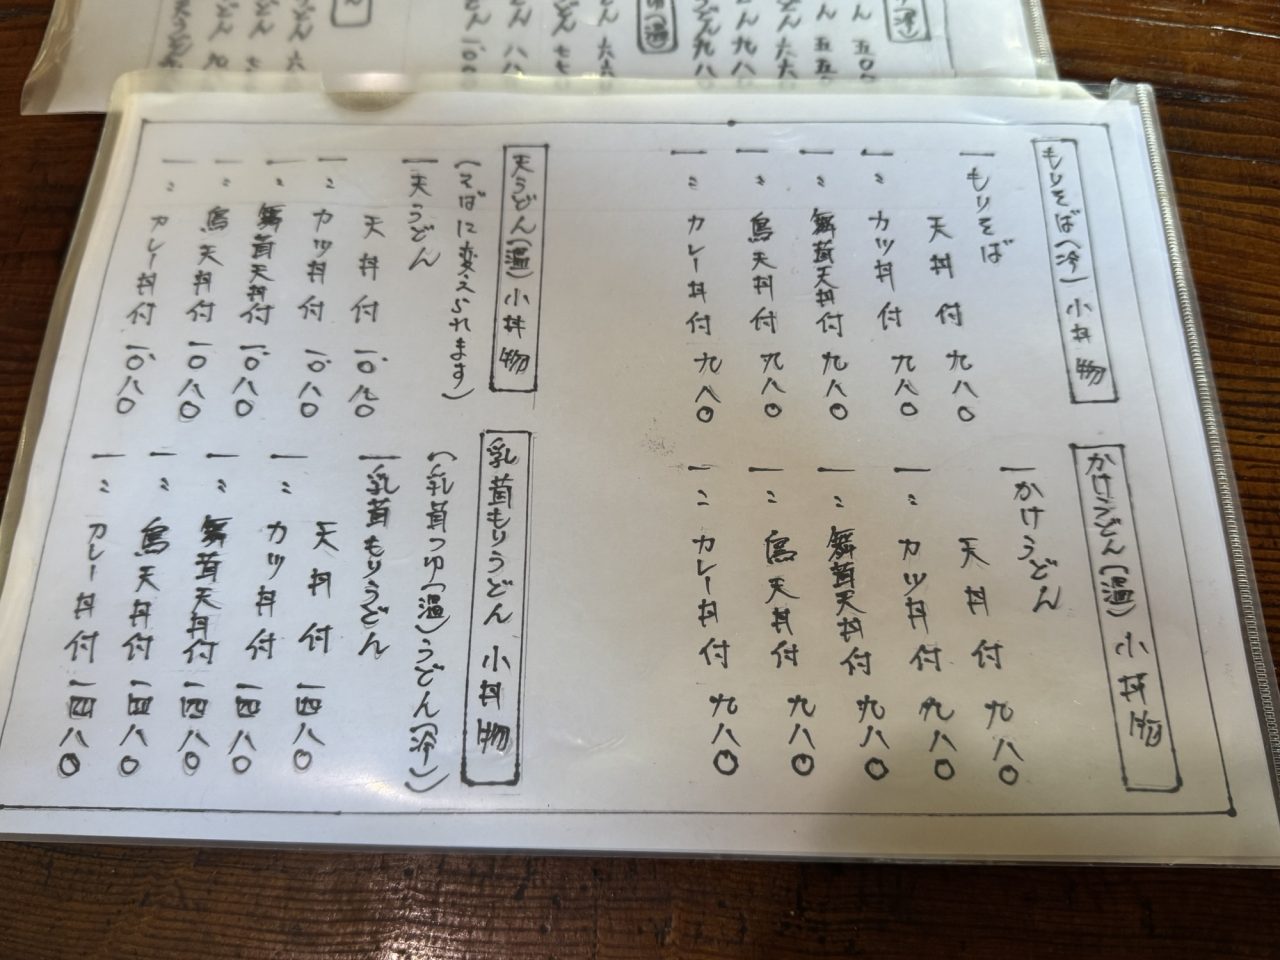 もりそば(冷)小丼物
一もりそば
天丼付 九八〇
一〃カツ丼付 九八〇
一〃舞茸天丼付 九八〇
一〃鳥天丼付 九八〇
一〃カレー丼付 九八〇
かけうどん(温)小丼物
一かけうどん
天丼付 九八〇
一〃カツ丼付 九八〇
一〃舞茸天丼付 九八〇
一〃鳥天丼付 九八〇
一〃カレー丼付 九八〇
天うどん(温)小丼物
(そばに変えられます)
一天うどん
天丼付 一〇八〇
一〃カツ丼付 一〇八〇
一〃舞茸天丼付 一〇八〇
一〃鳥天丼付 一〇八〇
一〃カレー丼付 一〇八〇
乳茸もりうどん 小丼物
(乳茸つゆ(温)うどん(冷))
一乳茸もりうどん
天丼付 一四八〇
一〃カツ丼付 一四八〇
一〃舞茸天丼付 一四八〇
一〃鳥天丼付 一四八〇
一〃カレー丼付 一四八〇